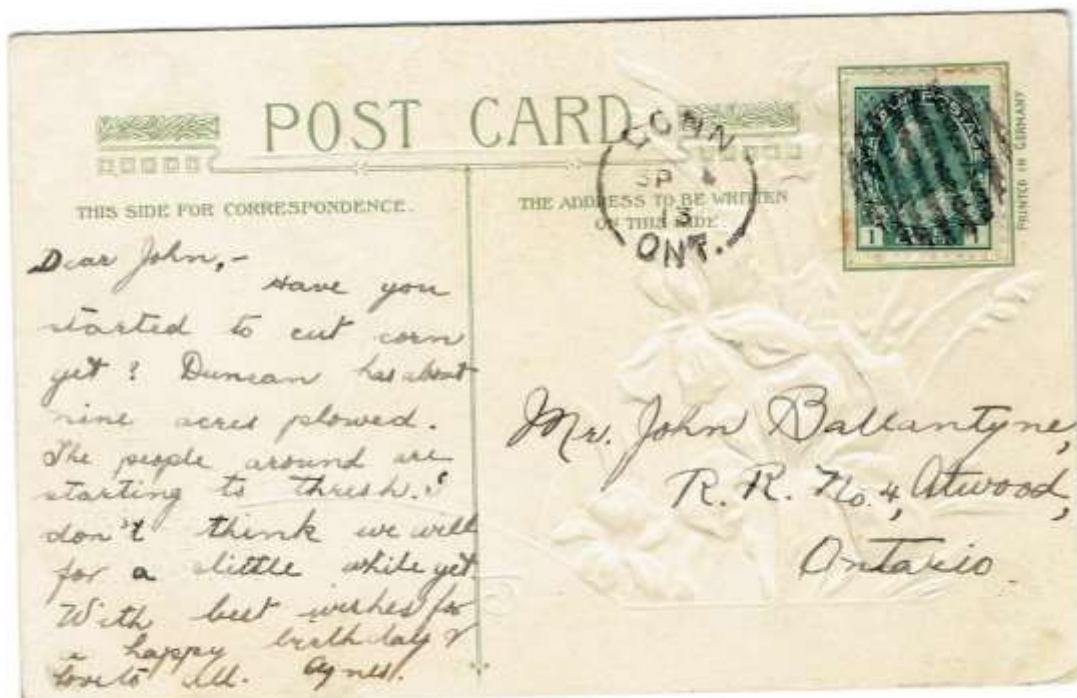 POST CARD
THIS SIDE FOR CORRESPONDENCE.
THE ADDRESS TO BE WRITTEN
ON THIS SIDE
CONN
SP 4
13
ONT.
1 1
PRINTED IN GERMANY
Dear John,-
Have you
started to cut corn
yet? Duncan has about
nine acres plowed.
The people around are
starting to thresh. I
don't think we will
for a little while yet
With best wishes for
a happy birthday &
love to all. Agnes.
Mr. John Ballantyne,
R. R. No. 4, Atwood,
Ontario.